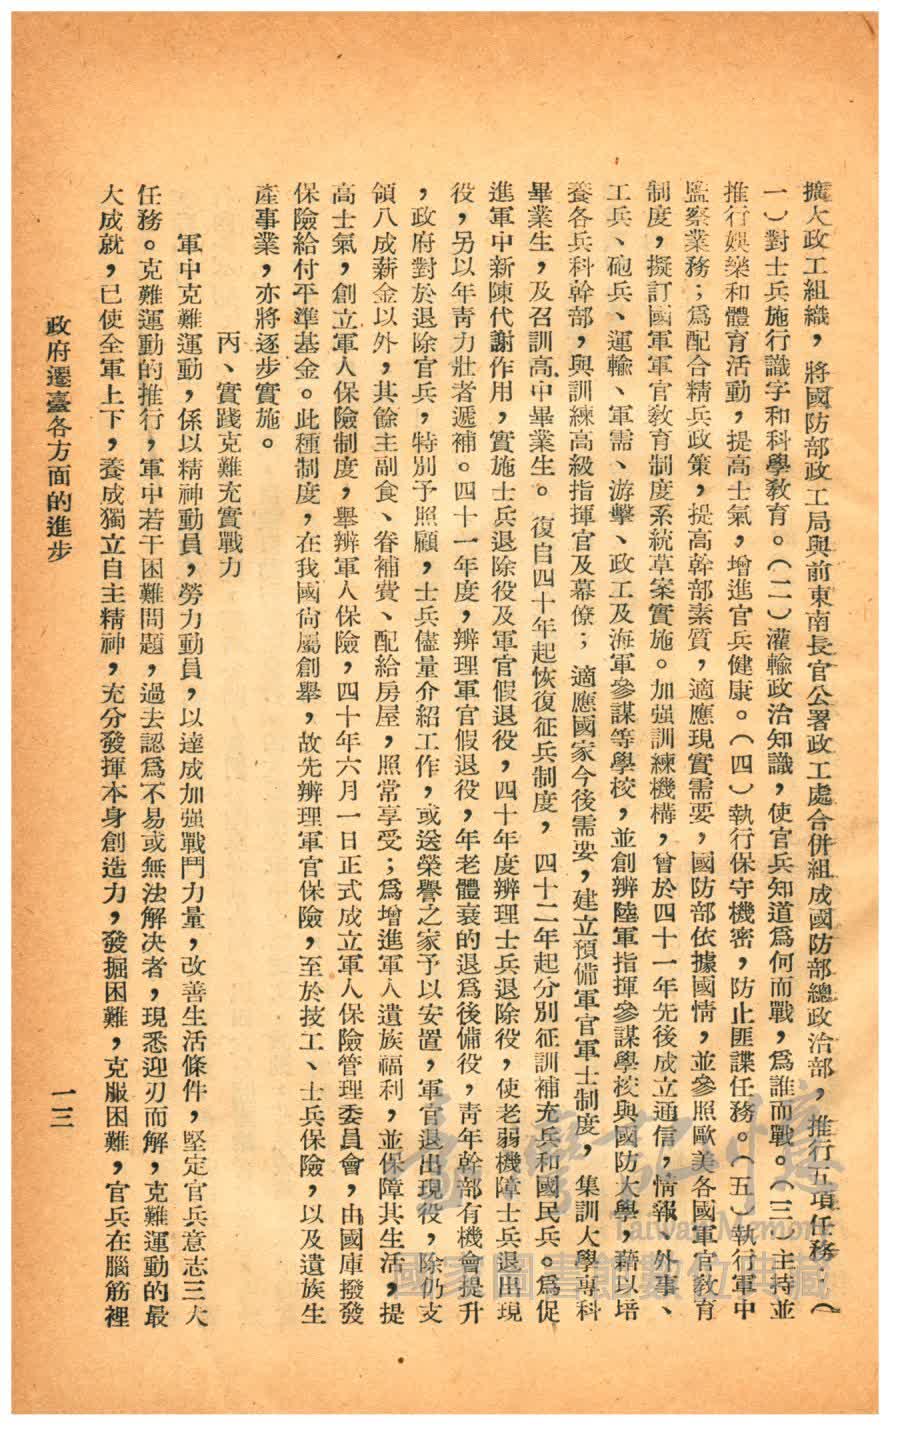 擴大政工組織，將國防部政工局與前東南長官公署政工處合併組成國防部總政治部，推行五項任務：（
一）對士兵施行識字和科學教育。（二）灌輸政治知識，使官兵知道爲何而戰，爲誰而戰。（三）主持並
推行娛樂和體育活動，提高士氣，增進官兵健康。（四）執行保守機密，防止匪諜任務。（五）執行軍中
監察業務；爲配合精兵政策，提高幹部素質，適應現實需要，國防部依據國情，並參照歐美各國軍官敎育
制度，擬訂國軍軍官敎育制度系統草案實施。加强訓練機構，曾於四十一年先後成立通信，情報、外事、
工兵、砲兵、運輸、軍需、游擊、政工及海軍參謀等學校，並創辨陸軍指揮參謀學校與國防大學，藉以培
養各兵科幹部，與訓練高級指揮官及幕僚；適應國家今後需要，建立預備軍官軍士制度，集訓大學專科
畢業生，及召訓高中畢業生。復自四十年起恢復征兵制度，四十二年起分別征訓補充兵和國民兵。爲促
進軍中新陳代謝作用，實施士兵退除役及軍官假退役，四十年度辨理士兵退除役，使老弱機障士兵退出現
役，另以年靑力壯者遞補。四十一年度，辨理軍官假退役，年老體衰的退爲後備役，靑年幹部有機會提升
，政府對於退除官兵，特別予照顧，士兵儘量介紹工作，或送榮譽之家予以安置，軍官退出現役，除仍支
領八成薪金以外，其餘主副食、眷補費、配給房屋，照常享受；爲增進軍人遺族福利，並保障其生活，提
高士氣，創立軍人保險制度，舉辨軍人保險，四十年六月一日正式成立軍人保險管理委員會，由國庫撥發
保險給付平準基金。此種制度，在我國尙屬創舉，故先辨理軍官保險，至於技工、士兵保險，以及遺族生
產事業，亦將逐步實施。
丙、實踐克難充實戰力
軍中克難運動，係以精神動員，勞力動員，以達成加强戰鬥力量，改善生活條件，堅定官兵意志三大
任務。克難運動的推行，軍中若干困難問題，過去認爲不易或無法解决者，現悉迎刃而解，克難運動的最
大成就，已使全軍上下，養成獨立自主精神，充分發揮本身創造力，發掘困難，克服困難，官兵在腦筋裡
政府遷臺各方面的進步
一三
臺灣記憶
Taiwan Memory
國家圖書館數位典藏